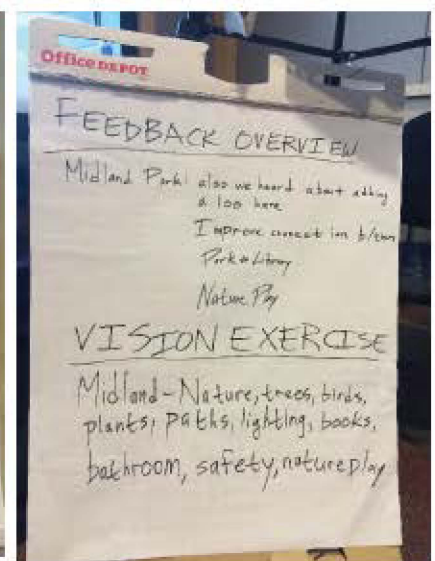 Office DEPOT
FEEDBACK OVERVIEW
Midland Park: also we heard about adding
a loo here
Improve connection b/tween
Park & Library
Nature Play
VISION EXERCISE
Midland-Nature, trees, birds,
plants, paths, lighting, books,
bathroom, safety, nature play